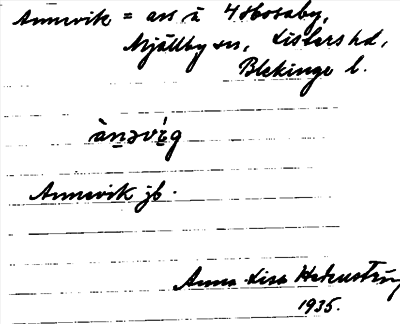 Annevik = avs. å 4 Hosaby,
Mjällby sn, Listers hd,
Blekinge l.
ànǝvíg
Annevik jb.
Anna-Lisa Hedenström
1935.